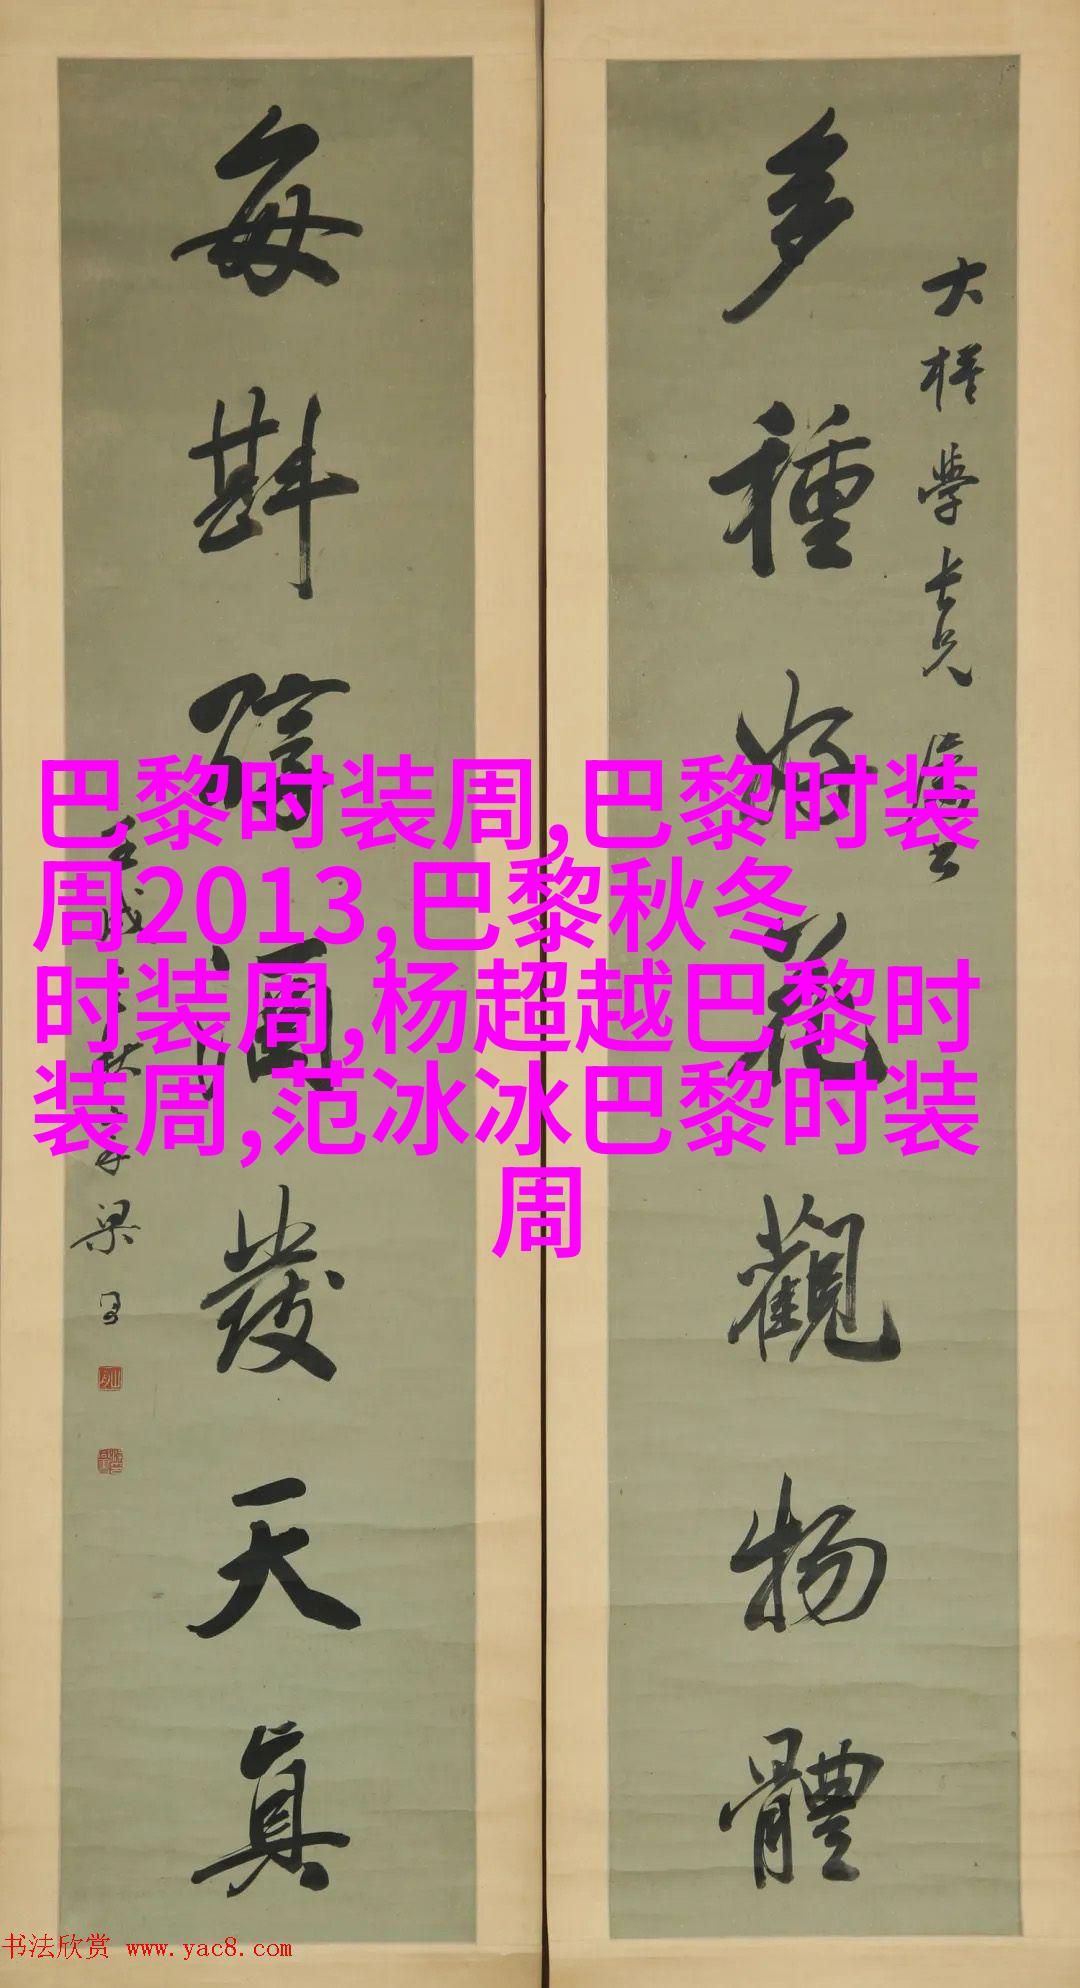 多種好花觀物體
大樸學長兄
每斟醇酒發天真
巴黎时装周,巴黎时装
周2013,巴黎秋冬
时装周,杨超越巴黎时
装周,范冰冰巴黎时装
周
书法欣赏 www.yac8.com